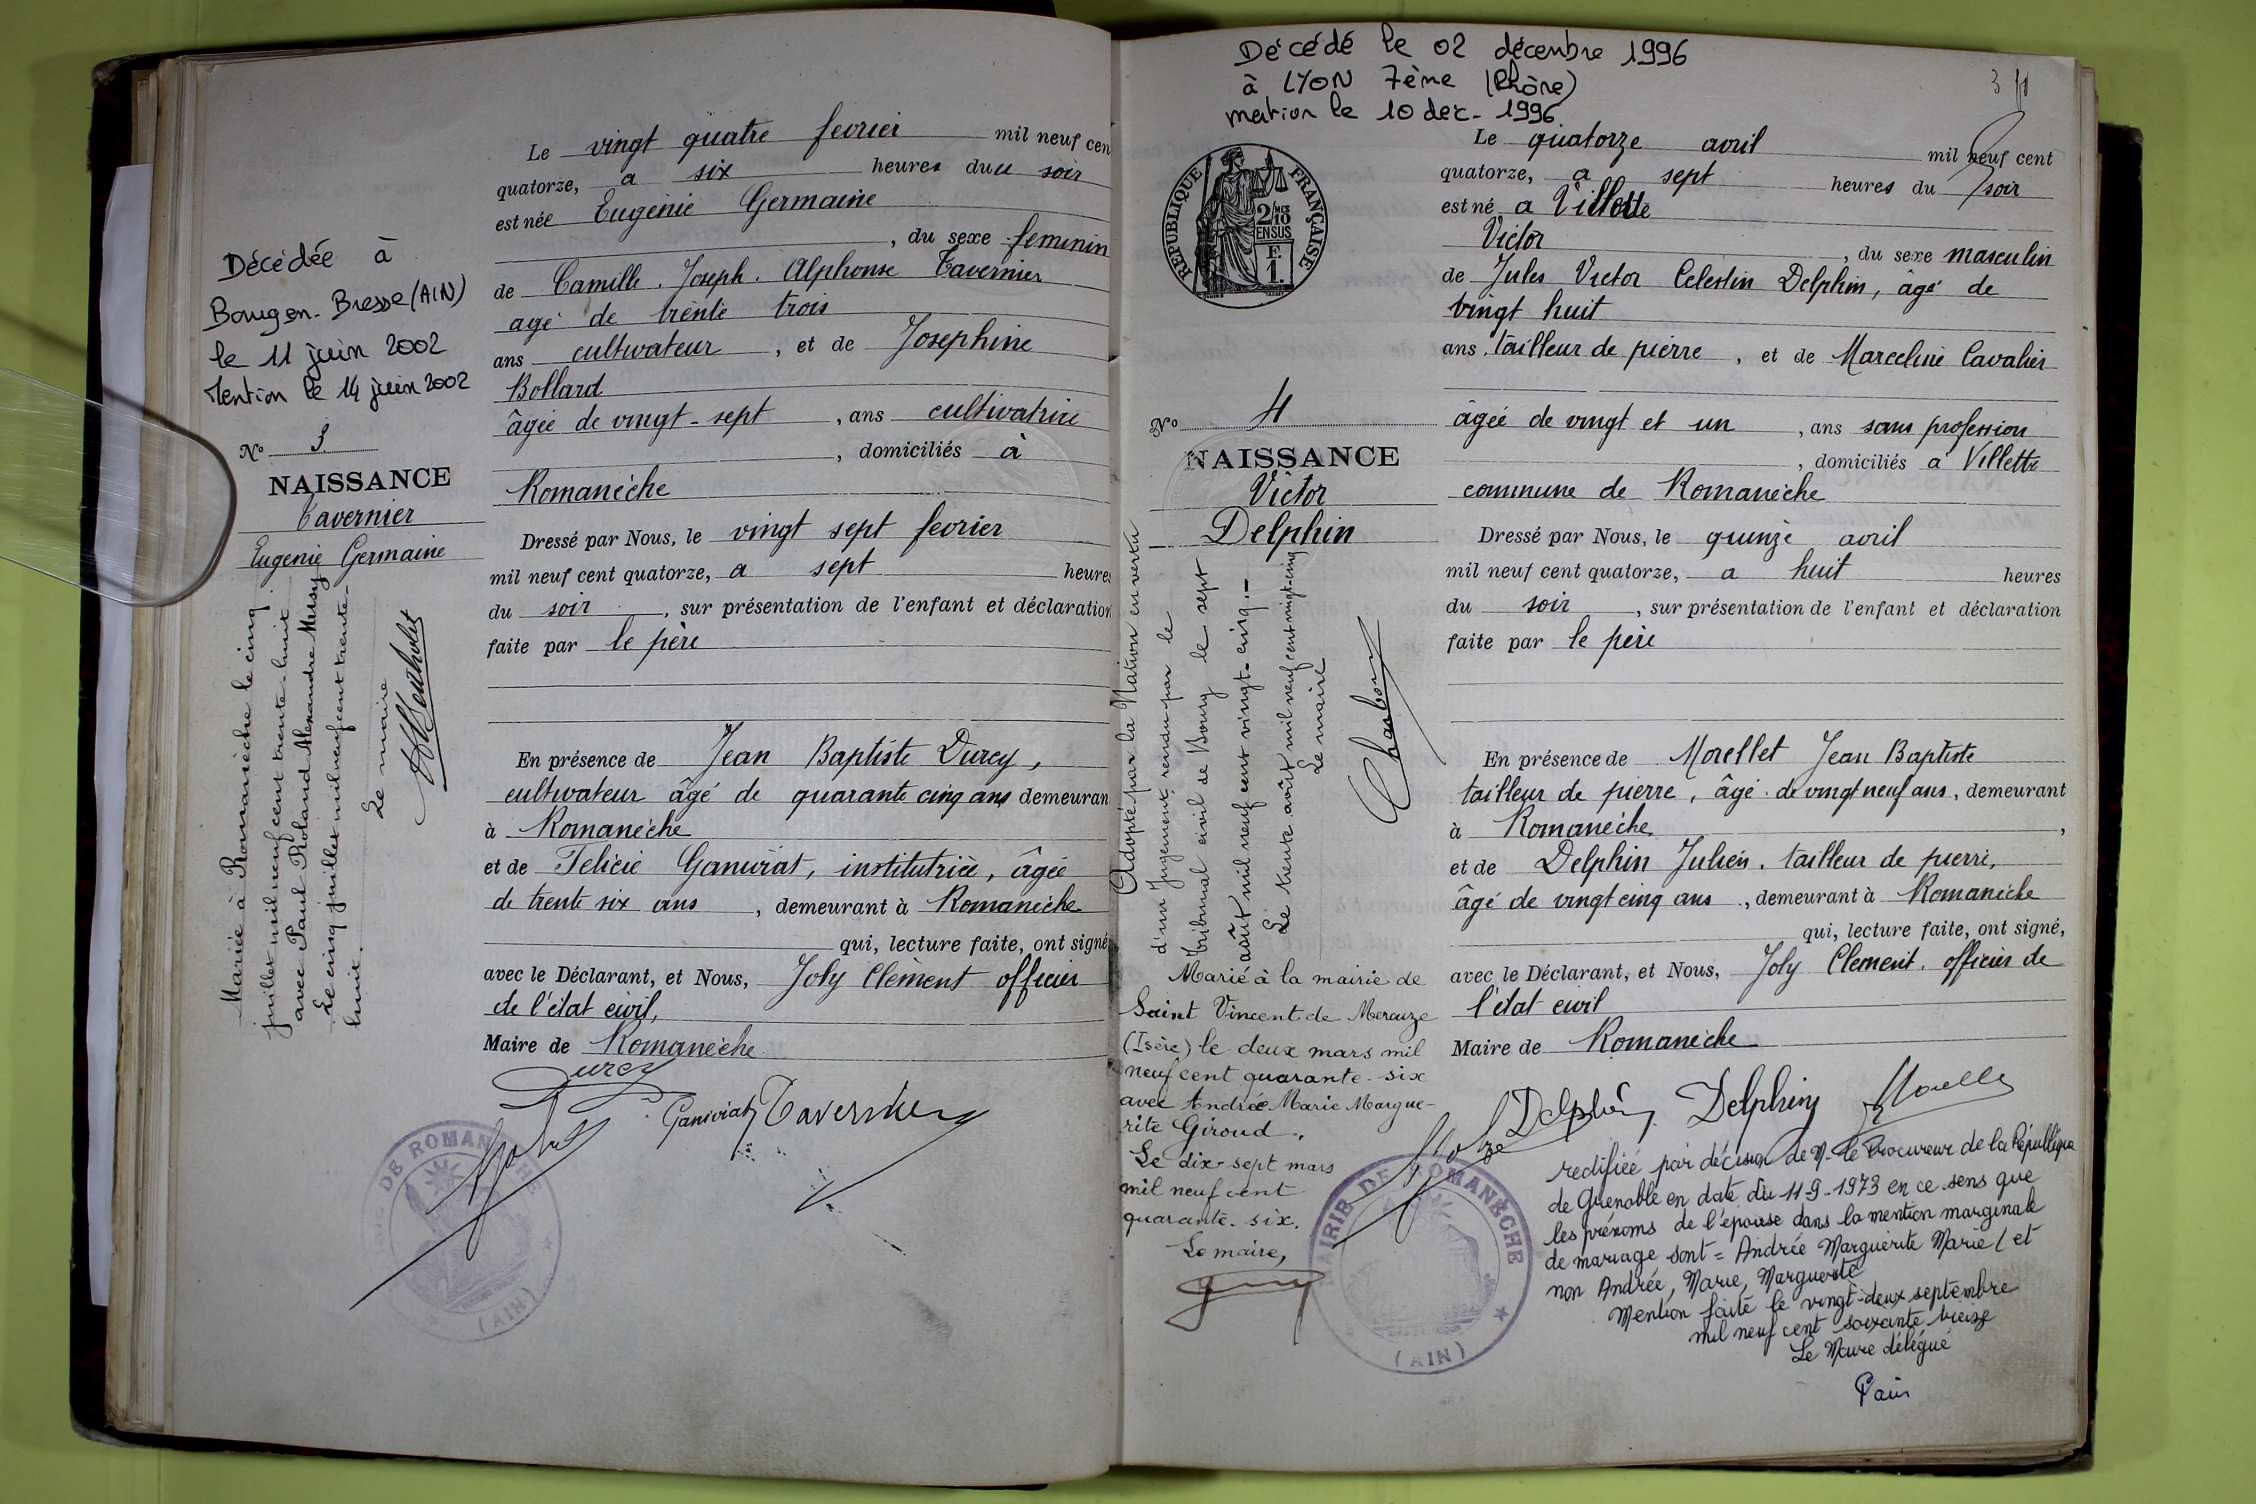 Décédée à
Bourg en Bresse (AIN)
le 11 juin 2002
Mention le 14 juin 2002
N° 3
NAISSANCE
Tavernier
Eugenie Germaine
Mariée à Romanèche le cinq
juillet mil neuf cent trente-huit
avec Paul Roland Alexandre
Le cinq juillet mil neuf cent trente-
huit.
Le maire
Le vingt quatre fevrier mil neuf cen
quatorze, a six heures du soir
est née Eugenie Germaine
, du sexe feminin
de Camille. Joseph. Alphonse Tavernier
agé de trente trois
ans cultivateur, et de Josephine
Bollard
âgée de vingt-sept, ans cultivatrice
, domiciliés à
Romanèche
Dressé par Nous, le vingt sept fevrier
mil neuf cent quatorze, a sept heures
du soir, sur présentation de l'enfant et déclaration
faite par le père
En présence de Jean Baptiste Durcy,
cultivateur âgé de quarante cinq ans demeuran
à Romanèche
et de Felicie Ganivat, institutrice, âgée
de trente six ans, demeurant à Romanèche
qui, lecture faite, ont signé
avec le Déclarant, et Nous, Joly Clément officier
de l'état civil,
Maire de Romanèche
Durcy
Ganivat Tavernier
Joly
DE ROMANÈCHE
(AIN)
Décédé le 02 décembre 1996
à LYON 7ème (Rhône)
mention le 10 dec- 1996
RÉPUBLIQUE FRANÇAISE
2/10
EN SUS
F.
1.
N° 4
NAISSANCE
Victor
Delphin
Adopté par la Nation en vertu
d'un jugement rendu par le
Tribunal civil de Bourg le sept
août mil neuf cent vingt-cinq.-
Le trente août mil neuf cent vingt-cinq
Le maire
Charbon
Marié à la mairie de
Saint Vincent de Mercuze
(Isère) le deux mars mil
neuf cent quarante-six
avec Andrée Marie Margue-
rite Giroud.
Le dix-sept mars
mil neuf cent
quarante-six.
Le maire,
Le quatorze avril mil neuf cent
quatorze, a sept heures du soir
est né a Villette
Victor, du sexe masculin
de Jules Victor Celestin Delphin, âgé de
vingt huit
ans. tailleur de pierre, et de Marceline Cavalier
âgée de vingt et un, ans sans profession
, domiciliés a Villette
commune de Romanèche
Dressé par Nous, le quinze avril
mil neuf cent quatorze, a huit heures
du soir, sur présentation de l'enfant et déclaration
faite par le père
En présence de Morellet Jean Baptiste
tailleur de pierre, âgé de vingt neuf ans, demeurant
à Romanèche,
et de Delphin Julien. tailleur de pierre,
âgé de vingt cinq ans, demeurant à Romanèche
qui, lecture faite, ont signé,
avec le Déclarant, et Nous, Joly Clement. officier de
l'état civil
Maire de Romanèche
Delphin Delphin Morellet
MAIRIE DE ROMANÈCHE
(AIN)
rectifiée par décision de M. le Procureur de la République
de Grenoble en date du 11-9-1973 en ce sens que
les prénoms de l'épouse dans la mention marginale
de mariage sont = Andrée Marguerite Marie (et
non Andrée, Marie, Marguerite
Mention faite le vingt-deux septembre
mil neuf cent soixante treize
Le Maire délégué